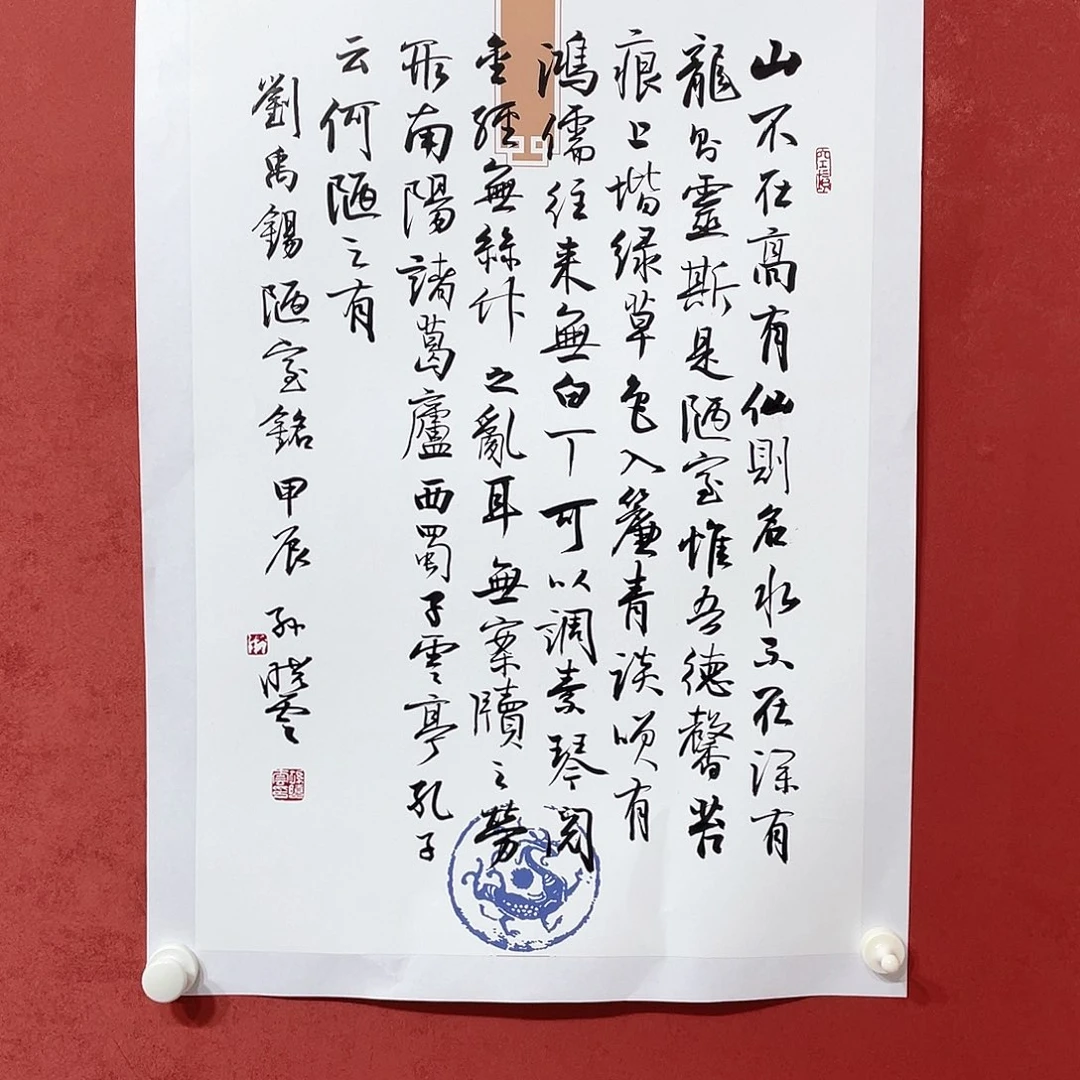 山不在高有仙則名水不在深有
龍則靈斯是陋室惟吾德馨苔
痕上堦绿草色入簾青談咲有
鴻儒往来無白丁可以調素琴閲
金經無絲竹之亂耳無案牘之勞
形南陽諸葛廬西蜀子雲亭孔子
云何陋之有
劉禹錫陋室銘甲辰孫曉雲